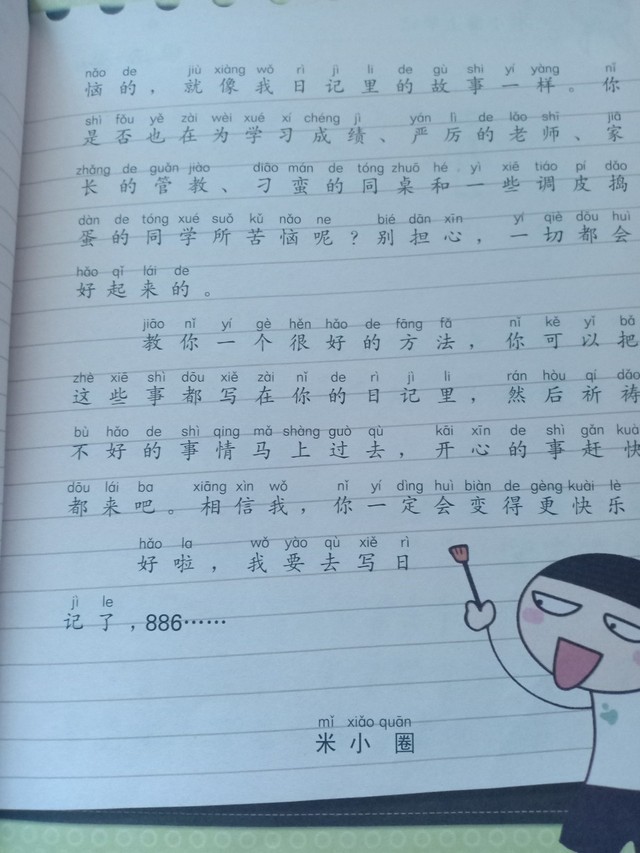 nǎo de jiù xiàng wǒ rì jì li de gù shi yí yàng nǐ
恼的，就像我日记里的故事一样。你
shì fǒu yě zài wèi xué xí chéng jì yán lì de lǎo shī jiā
是否也在为学习成绩、严厉的老师、家
zhǎng de guǎn jiào diāo mán de tóng zhuō hé yì xiē tiáo pí dǎo
长的管教、刁蛮的同桌和一些调皮捣
dàn de tóng xué suǒ kǔ nǎo ne bié dān xīn yí qiè dōu huì
蛋的同学所苦恼呢？别担心，一切都会
hǎo qǐ lái de
好起来的。
jiāo nǐ yí gè hěn hǎo de fāng fǎ nǐ kě yǐ bǎ
教你一个很好的方法，你可以把
zhè xiē shì dōu xiě zài nǐ de rì jì li rán hòu qí dǎo
这些事都写在你的日记里，然后祈祷
bù hǎo de shì qing mǎ shàng guò qù kāi xīn de shì gǎn kuà
不好的事情马上过去，开心的事赶快
dōu lái ba xiāng xìn wǒ nǐ yí dìng huì biàn de gèng kuài lè
都来吧。相信我，你一定会变得更快乐
hǎo la wǒ yào qù xiě rì
好啦，我要去写日
jì le
记了，886……
mǐ xiǎo quān
米小圈